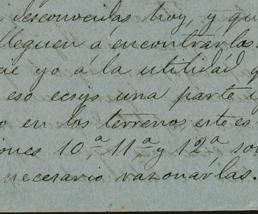 desconocidas hoy, y qu
lleguen á encontrarla
cie yo á la utilidád y
eso ecsijo una parte i
o en los terrenos este es
iones 10.ª 11.ª y 12.ª so
necesario razonárlas.